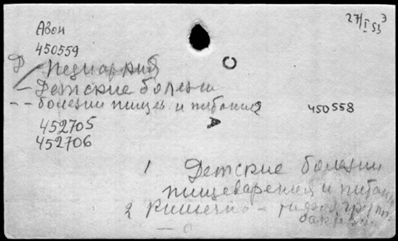 Азои
27/I 53
450559
Педиатрия
Детские болезни
болезни пищев. и питания
450558
452705
452706
1 Детские болезни
пищеварения и питан
2 Кишечно -